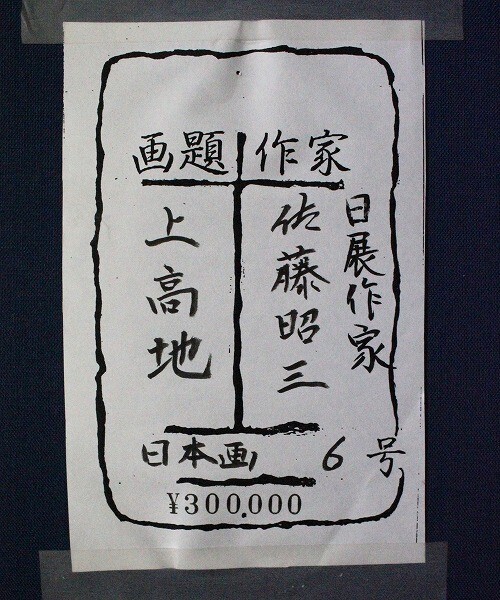 画題 作家
日展作家
佐藤昭三
上高地
日本画 6号
¥300.000